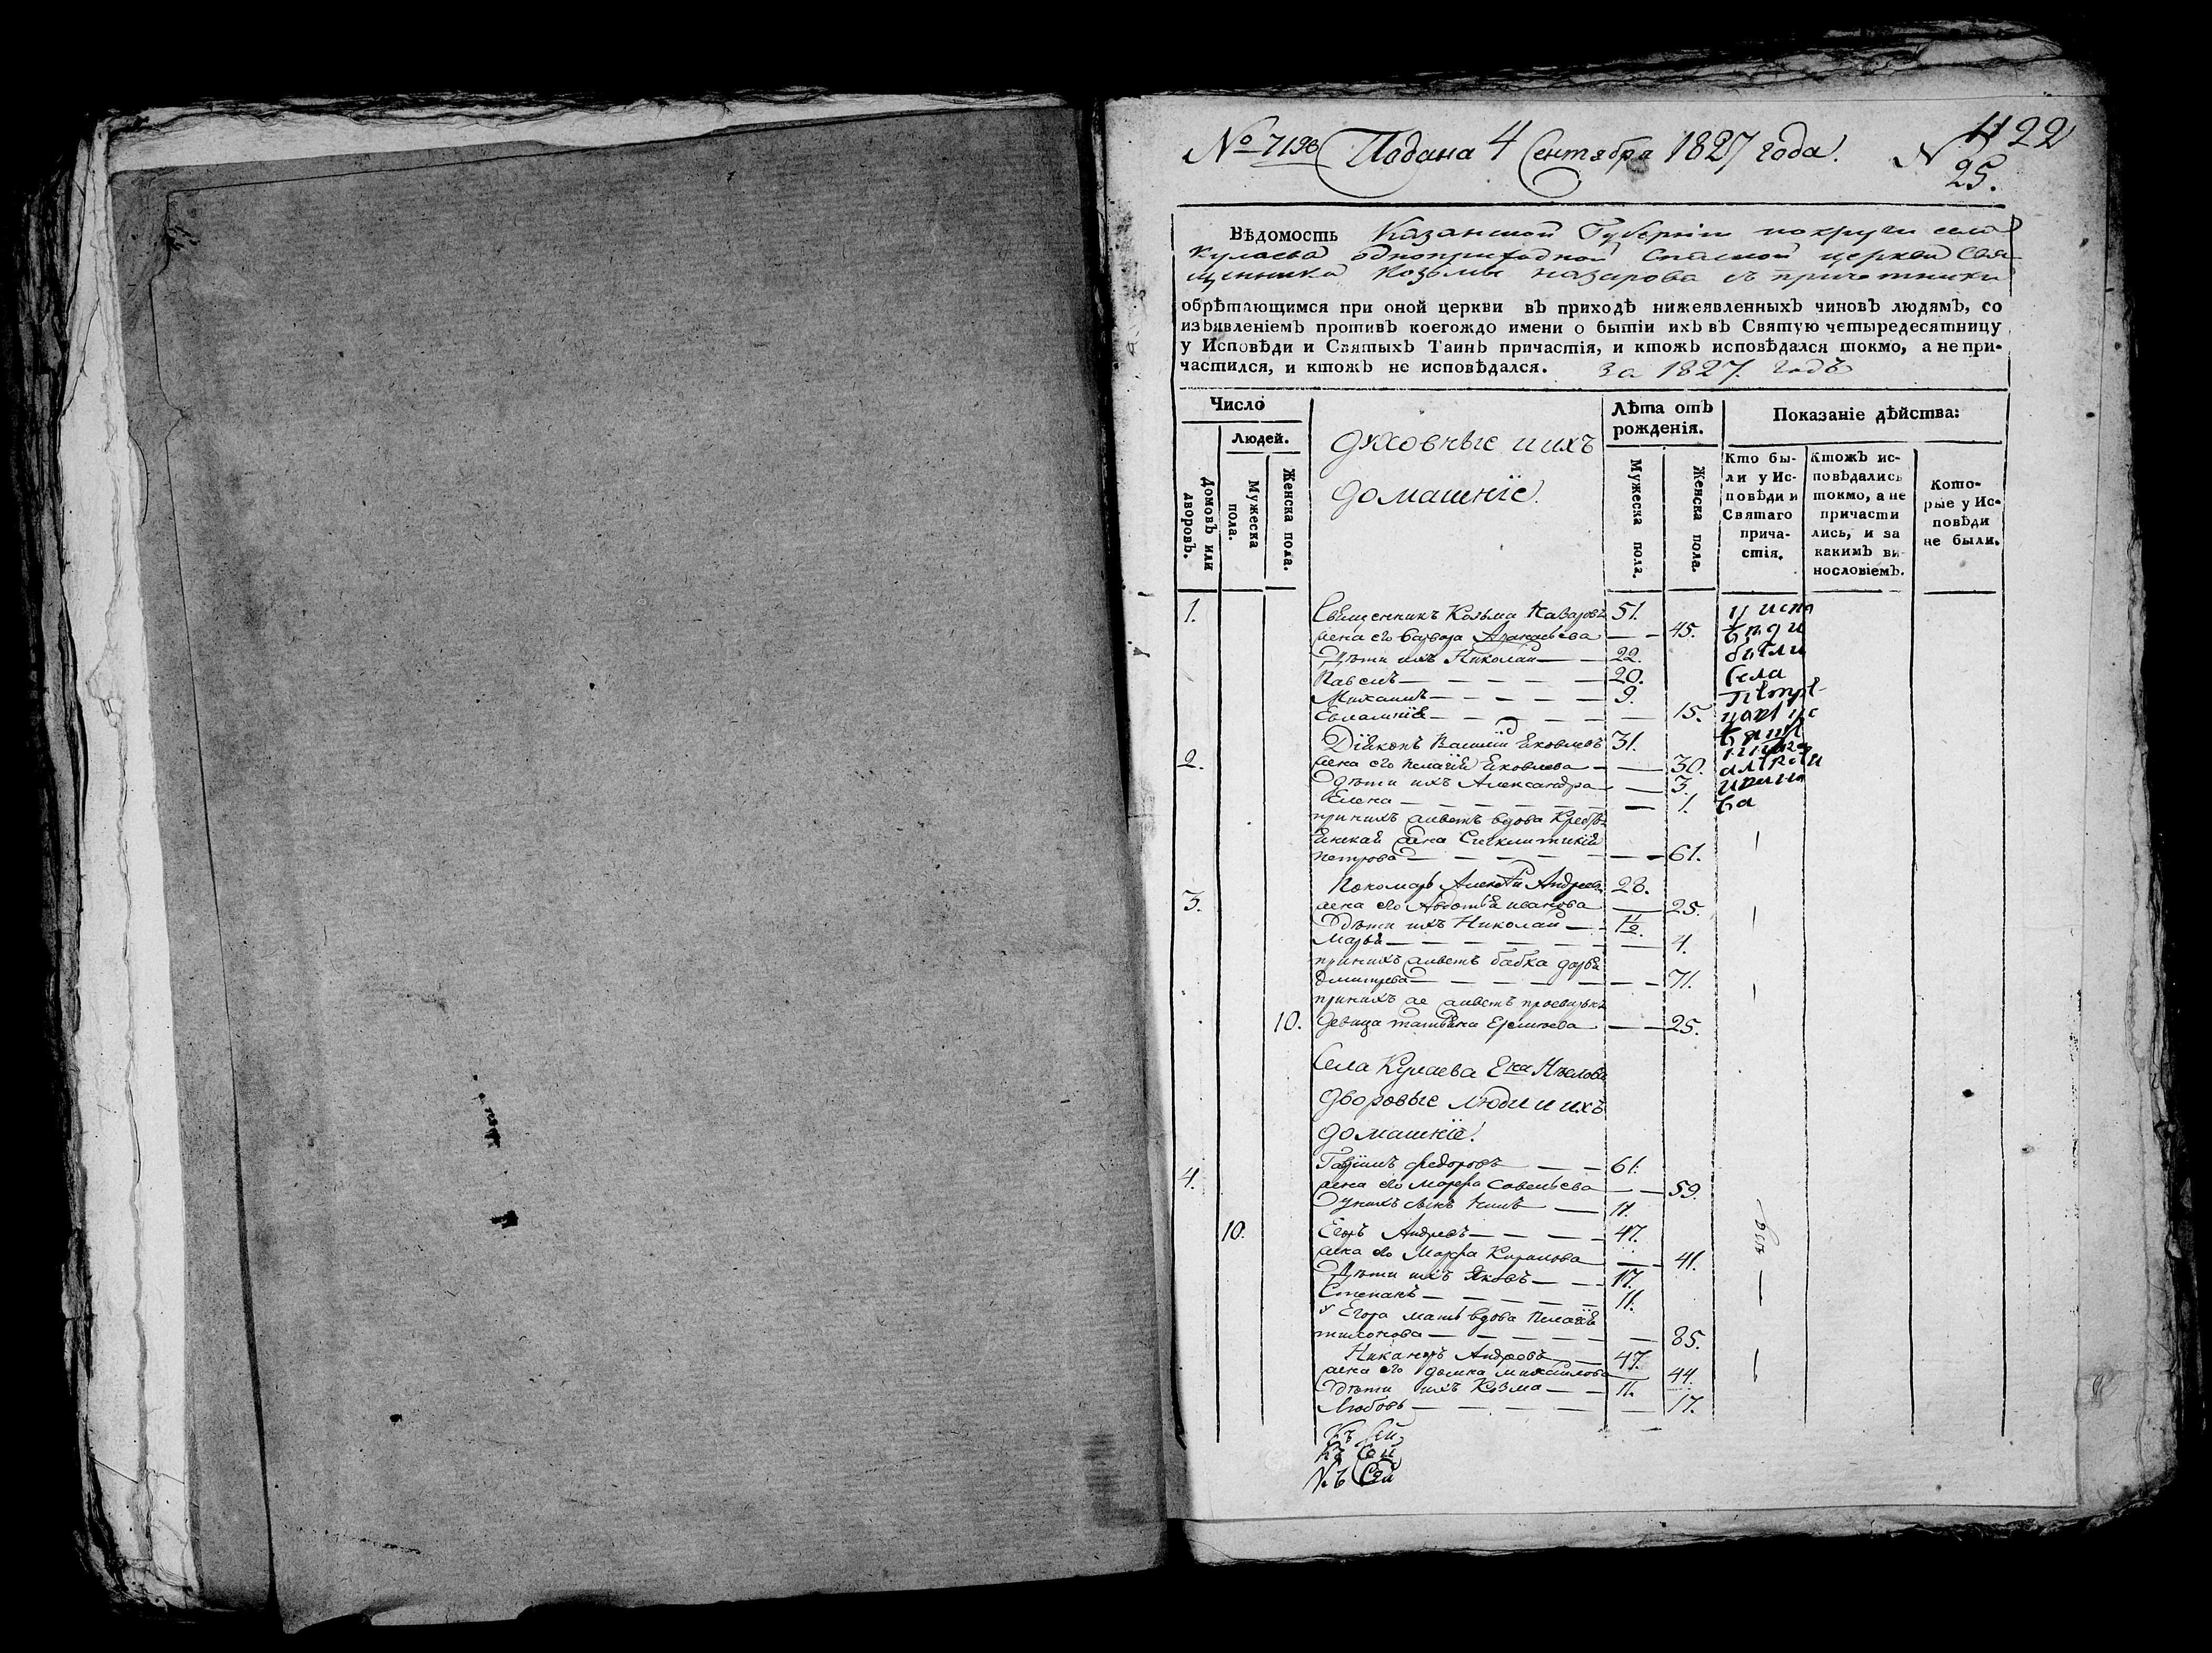 № 7198 Подана 4 Сентября 1827 года. № 25. 422
Вѣдомость Казанской Губернiи покруги села
Кулаева одноприходной Спаской церкви Свя
щенника Козьмы назарова съ причетники
обрѣтающимся при оной церкви въ приходѣ нижеявленныхъ чиновъ людямъ, со
изъявленiемъ противъ коегождо имени о бытiи ихъ въ Святую четыредесятницу
у Исповѣди и Святыхъ Таинъ причастiя, и ктожъ исповѣдался токмо, а не при-
частился, и ктожъ не исповѣдался. за 1827. годъ
Число
Людей.
Домовъ или дворовъ.
Мужеска пола.
Женска пола.
Духовные и ихъ
домашнiе.
Лѣта отъ рожденiя.
Мужеска пола.
Женска пола.
Показанiе дѣйства:
Кто бы-
ли у Ис-
повѣди и
Святаго
прича-
стiя.
Ктожъ ис-
повѣдались
токмо, а не
причасти
лись, и за
какимъ ви-
нословiемъ.
Кото-
рые у Ис-
повѣди
не были.
1. Священникъ Козьма Назаровъ 51. у испо
жена его варвара Афанасьева 45. вѣди
Дѣти ихъ Николай 22. были
Павелъ 20. села
Михаилъ 9.
Евлампiя 15.
Дiяконъ Василiй Яковлевъ 31.
2. жена его пелагiя Яковлева 30.
дѣти ихъ Александра 3.
Елена 1.
при нихъ живетъ вдова
жена Синклитикiя
петрова 61.
Пономарь Алексѣй Андреевъ 28.
3. жена его Авдотья иванова 25.
Дѣти ихъ Николай 1/2.
Марья 4.
при нихъ живетъ бабка дарья
дмитрева 71.
при нихъ же живетъ
10. девица татьяна 25.
Села Кулаева
дворовые люди и ихъ
домашнiе.
Гаврiилъ федоровъ 61.
4. жена его марфа савельева 59.
у нихъ сынъ 11.
10. Егоръ Андревъ 47.
жена его Марфа 41.
Дѣти ихъ Яковъ 17.
Степанъ 11.
у Егора мать вдова Пелагiя
тихонова 85.
Никаноръ Андревъ 47.
жена его домна михайлова 44.
Дѣти ихъ Козма 11.
Любовь 17.
Къ Сей
Къ Сей
Къ Сей